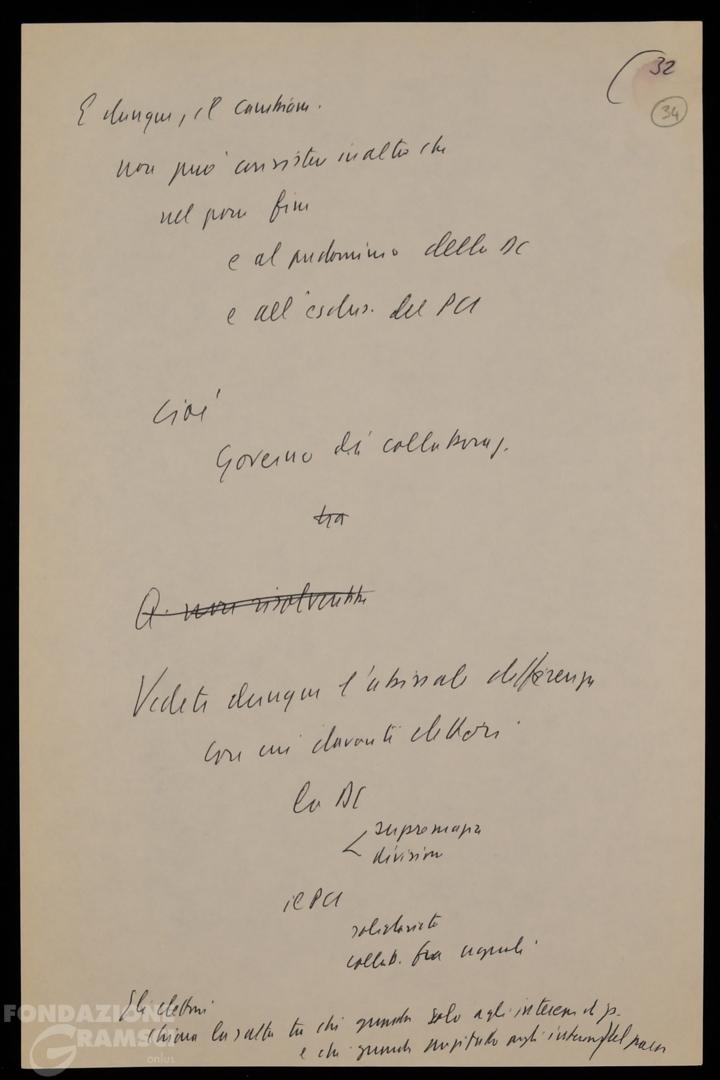 32
34
E dunque, il cambiam.
non può consistere in altro che
nel porre fine
e al predominio della DC
e all'esclus. del PCI
cioè
Governo di collaboraz.
tra
A non risolverebbe
Vedete dunque l'abissale differenza
con cui davanti elettori
la DC
< supremazia
divisione
il PCI
solidarietà
collab. fra uguali
Gli elettori
chiara la scelta tra chi guarda solo agli interessi di p.
e chi guarda anzitutto agli interessi del paese
FONDAZIONE
GRAMSCI
onlus